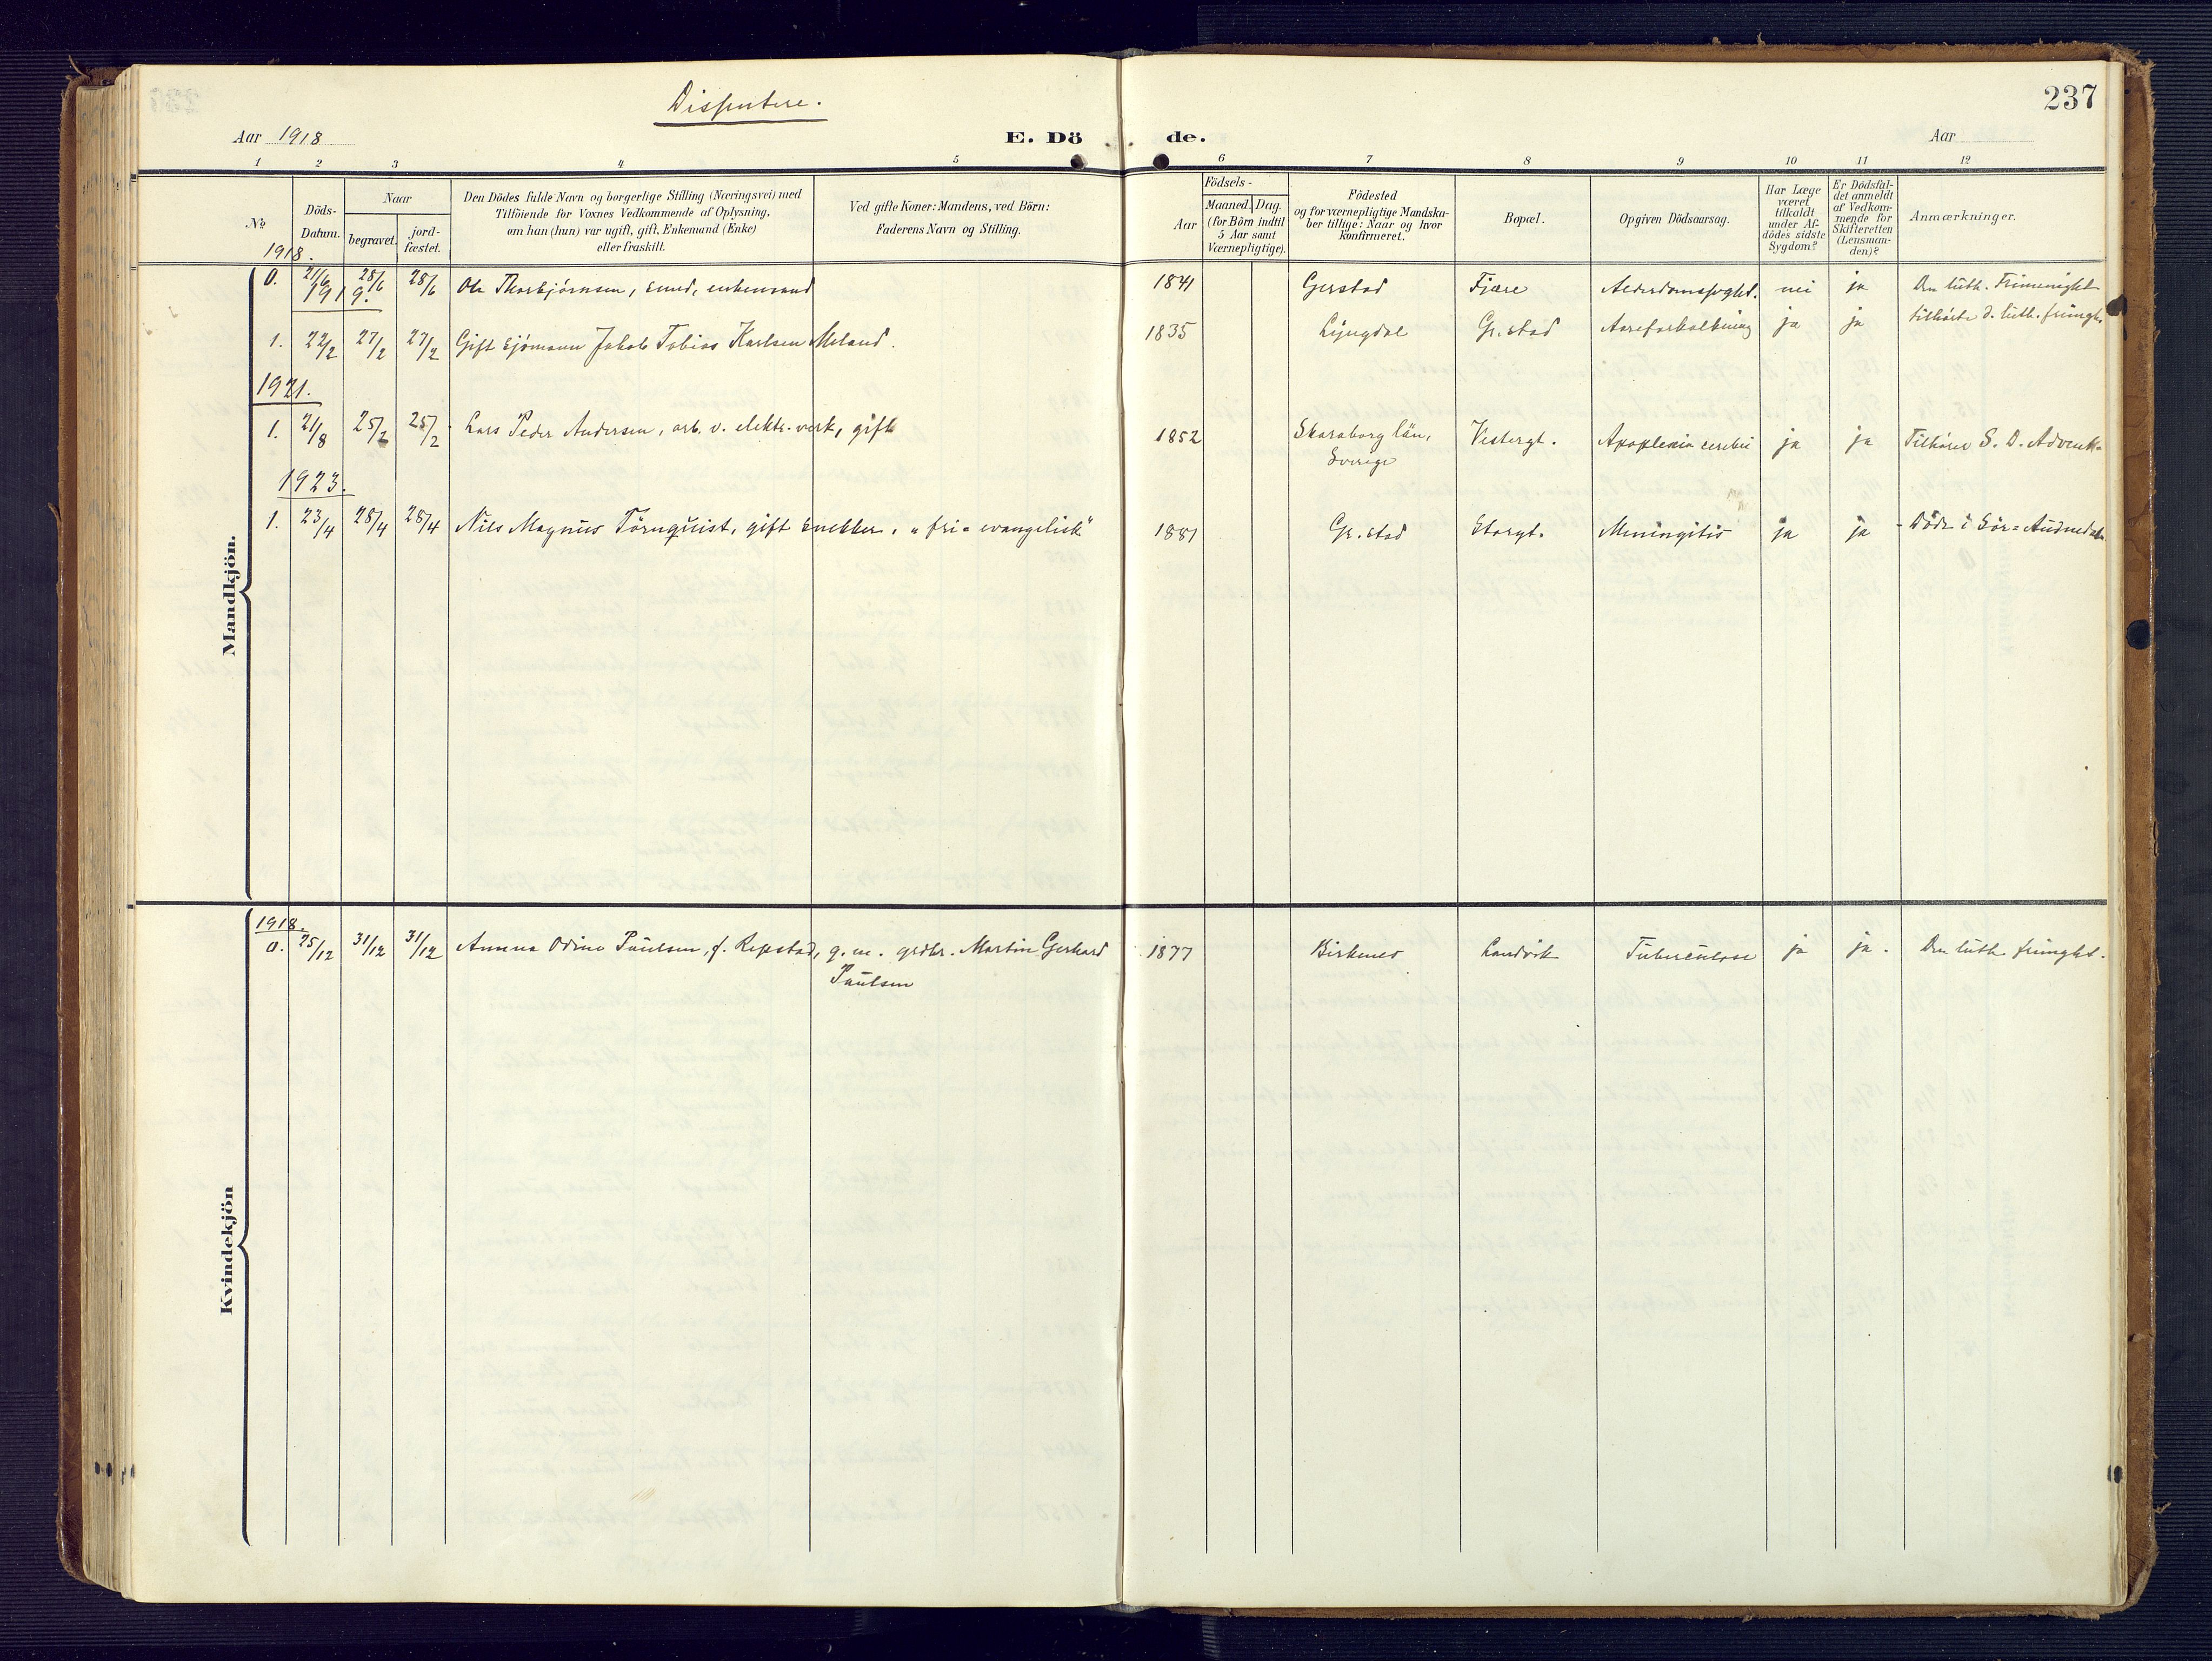 237
Dissentere.
Aar 1918
E. Dö de.
Aar
1 2 3 4 5 6 7 8 9 10 11 12
No
Döds-
Datum.
Naar
begravet.
jord-
fæstet.
Den Dödes fulde Navn og borgerlige Stilling (Næringsvei) med
Tilföiende for Voxnes Vedkommende af Oplysning,
om han (hun) var ugift, gift, Enkemand (Enke)
eller fraskilt.
Ved gifte Koner: Mandens, ved Börn:
Faderens Navn og Stilling.
Födsels-
Aar
Maaned.
Dag.
(for Börn indtil
5 Aar samt
Værnepligtige).
Födested
og for værnepligtige Mandska-
ber tillige: Naar og hvor
konfirmeret.
Bopæl.
Opgiven Dödsaarsag.
Har Læge
været
tilkaldt
under Af-
dödes sidste
Sygdom?
Er Dödsfal-
det anmeldt
af Vedkom-
mende for
Skifteretten
(Lensman-
den)?
Anmærkninger.
Mandkjön.
1918.
0. 21/6 28/6 28/6 Ole Thorbjørnsen, smed, enkemand 1841 Gjerstad Fjære Alderdomssvaghet. nei ja Den luth. Frimenighet
1919.
1. 22/2 27/2 27/2 Gift sjömann Jakob Tobias Karlsen Meland. 1835 Lyngdal Gr.stad Aareforkalkning ja ja tilhörte d. luth. frimgh.
1921.
1. 21/8 25/2 25/2 Lars Peder Andersen, arb. v. elektr. verk, gift 1852 Skaraborg län, Sverige Vestergt. Apoplexia cerebri ja ja Tilhörer S. D. Advent.
1923.
1. 23/4 28/4 28/4 Nils Magnus Törnquist, gift snekker, "fri-evangelisk" 1881 Gr.stad Storgt. Meningitis ja ja - Döde i Sör-Audnedal
Kvindekjön
1918.
0. 25/12 31/12 31/12 Anna Odine Paulsen, f. Repstad, g.m. grdbr. Martin Gerhard 1877 Birkenes Landvik Tuberculose ja ja. Den luth frimght.
Paulsen